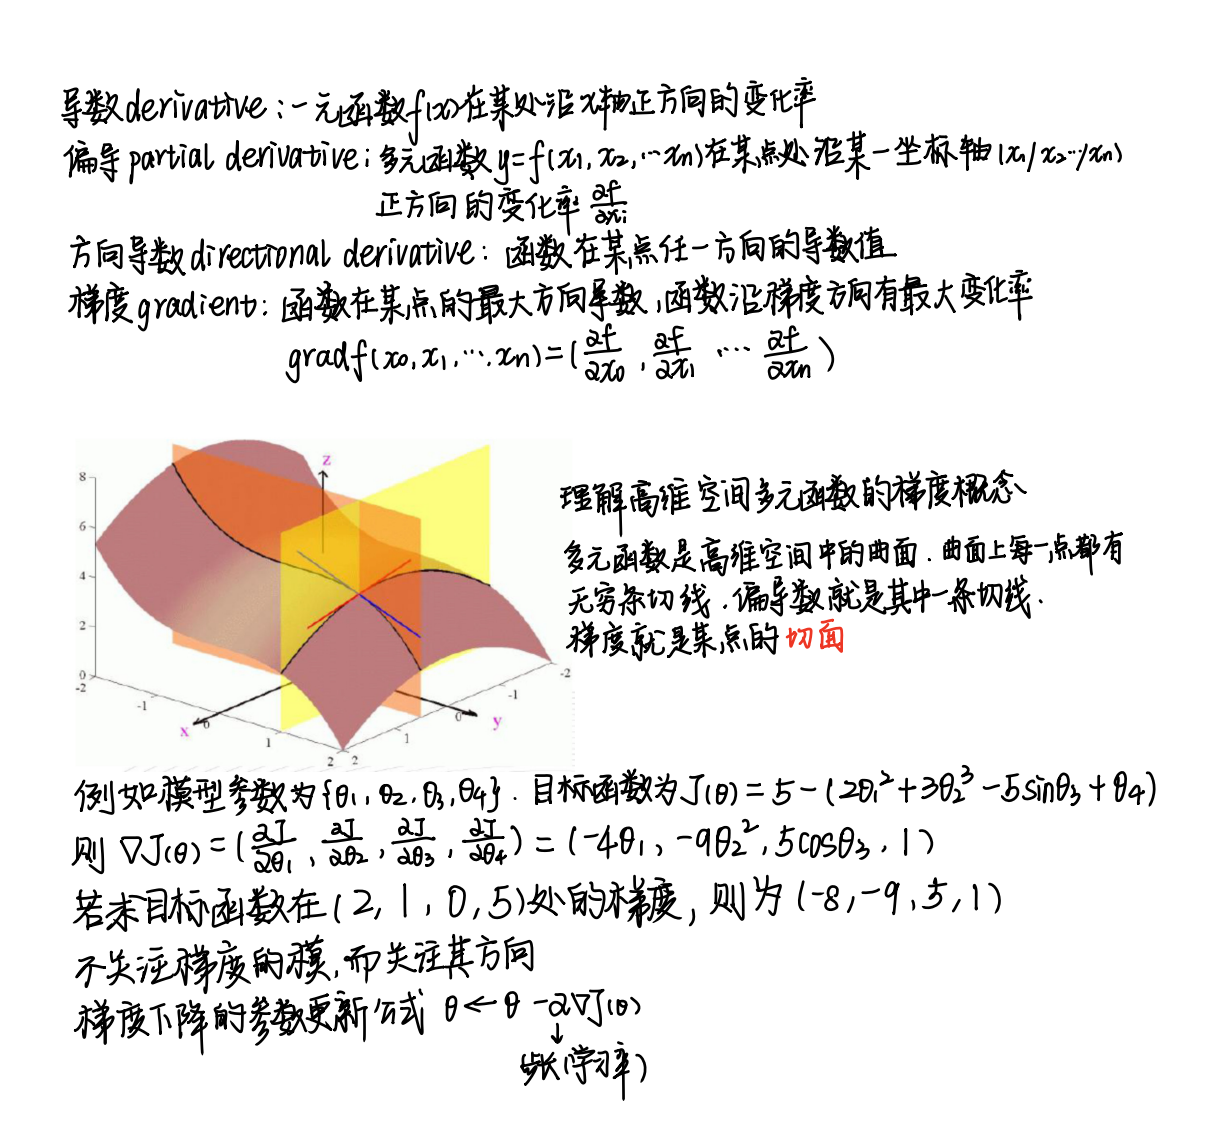 导数derivative:一元函数f(x)在某处沿x轴正方向的变化率
偏导partial derivative:多元函数y=f(x₁,x₂,…xn)在某点处沿某一坐标轴(x₁/x₂…/xn)
正方向的变化率 ∂f/∂xi
方向导数directional derivative:函数在某点任一方向的导数值
梯度gradient:函数在某点的最大方向导数,函数沿梯度方向有最大变化率
gradf(x₀,x₁,…,xn)=(∂f/∂x₀,∂f/∂x₁ … ∂f/∂xn)
z
8
6
4
2
0
-2
-1
0
1
2
2
1
0
-1
-2
x
y
理解高维空间多元函数的梯度概念
多元函数是高维空间中的曲面.曲面上每一点都有
无穷条切线.偏导数就是其中一条切线.
梯度就是某点的切面
例如模型参数为{θ₁,θ₂,θ₃,θ₄}.目标函数为J(θ)=5-(2θ₁²+3θ₂³-5sinθ₃+θ₄)
则 ∇J(θ)=(∂J/∂θ₁,∂J/∂θ₂,∂J/∂θ₃,∂J/∂θ₄)=(-4θ₁,-9θ₂²,5cosθ₃,1)
若求目标函数在(2,1,0,5)处的梯度,则为(-8,-9,5,1)
不关注梯度的模,而关注其方向
梯度下降的参数更新公式 θ←θ-α∇J(θ)
↓
步长(学习率)